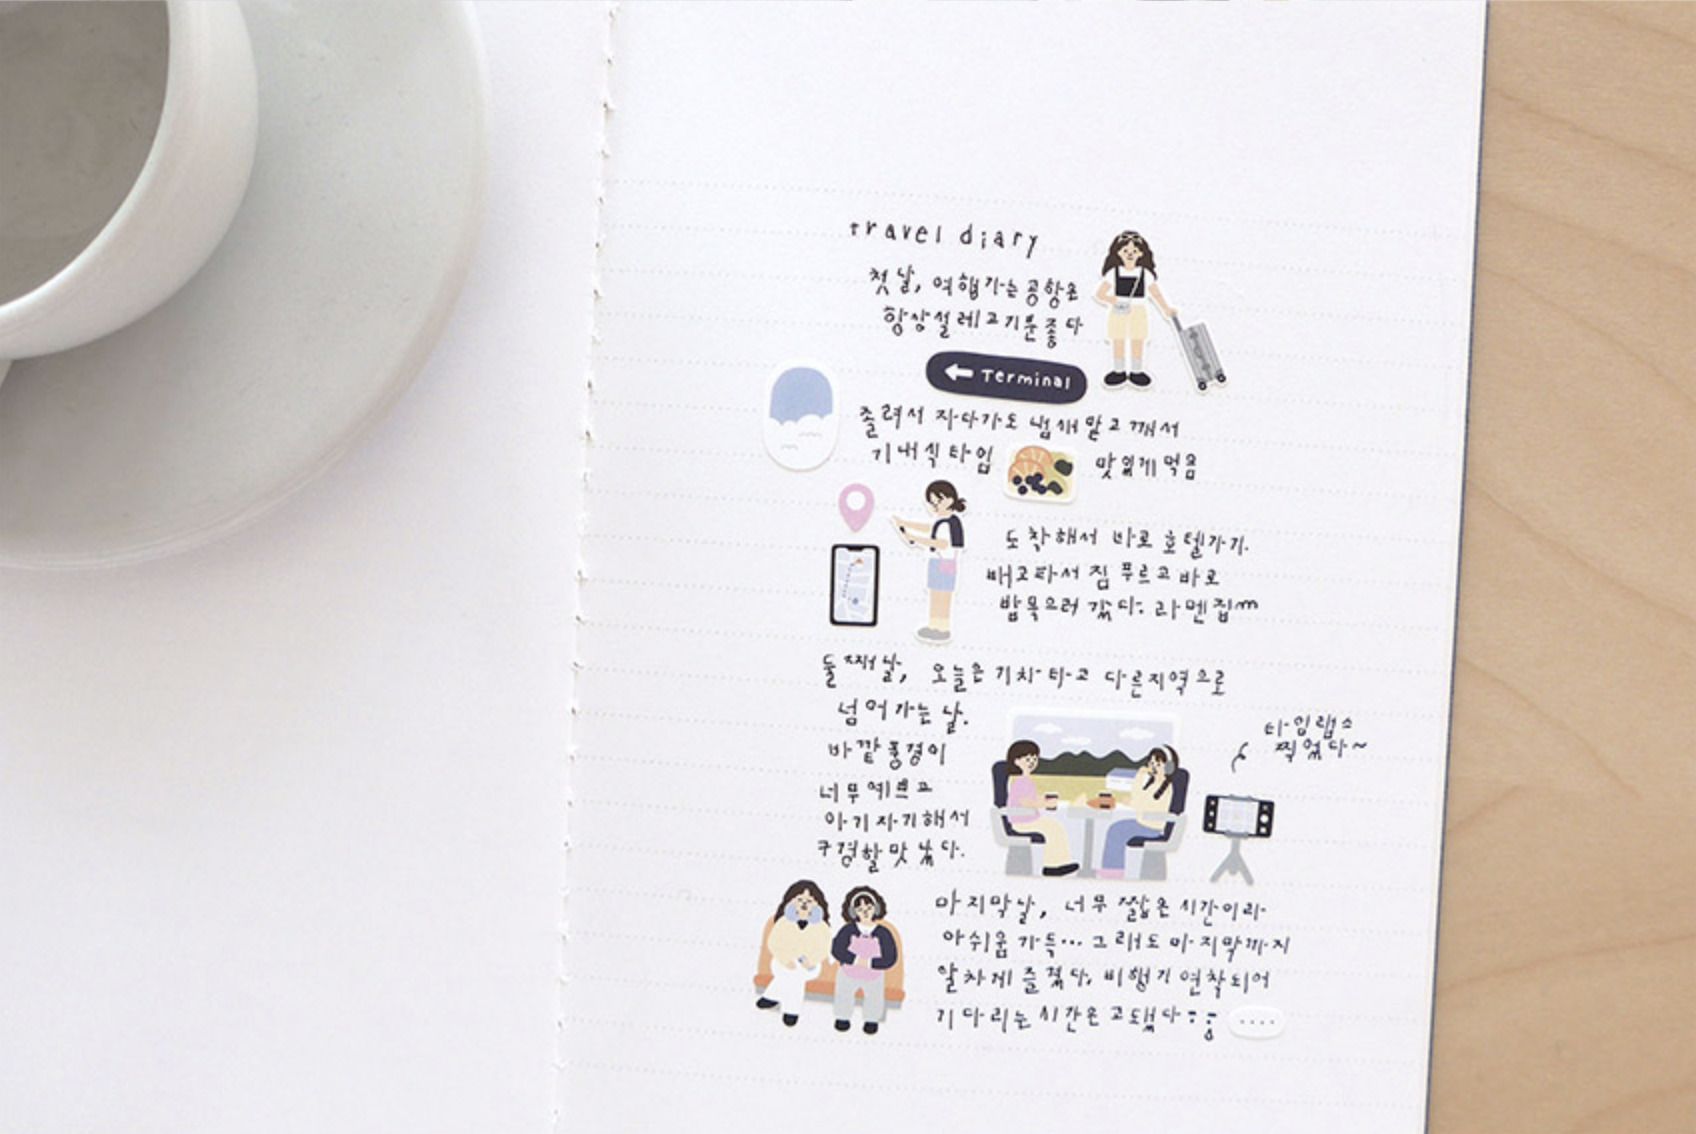 travel diary
첫날, 여행가는 공항은
항상 설레고 기분 좋다
← Terminal
졸려서 자다가도 냄새 맡고 깨서
기내식 타임 맛있게 먹음
도착해서 바로 호텔가기.
배고파서 짐 푸르고 바로
밥 먹으러 갔다. 라멘집m
둘째날, 오늘은 기차타고 다른지역으로
넘어가는 날.
바깥 풍경이
너무 예쁘고
아기자기해서
구경할 맛 났다.
타임랩스
찍었다~
마지막날, 너무 짧은 시간이라
아쉬움 가득... 그래도 마지막까지
알차게 즐겼다. 비행기 연착되어
기다리는 시간은 고됐다 ; ; ....